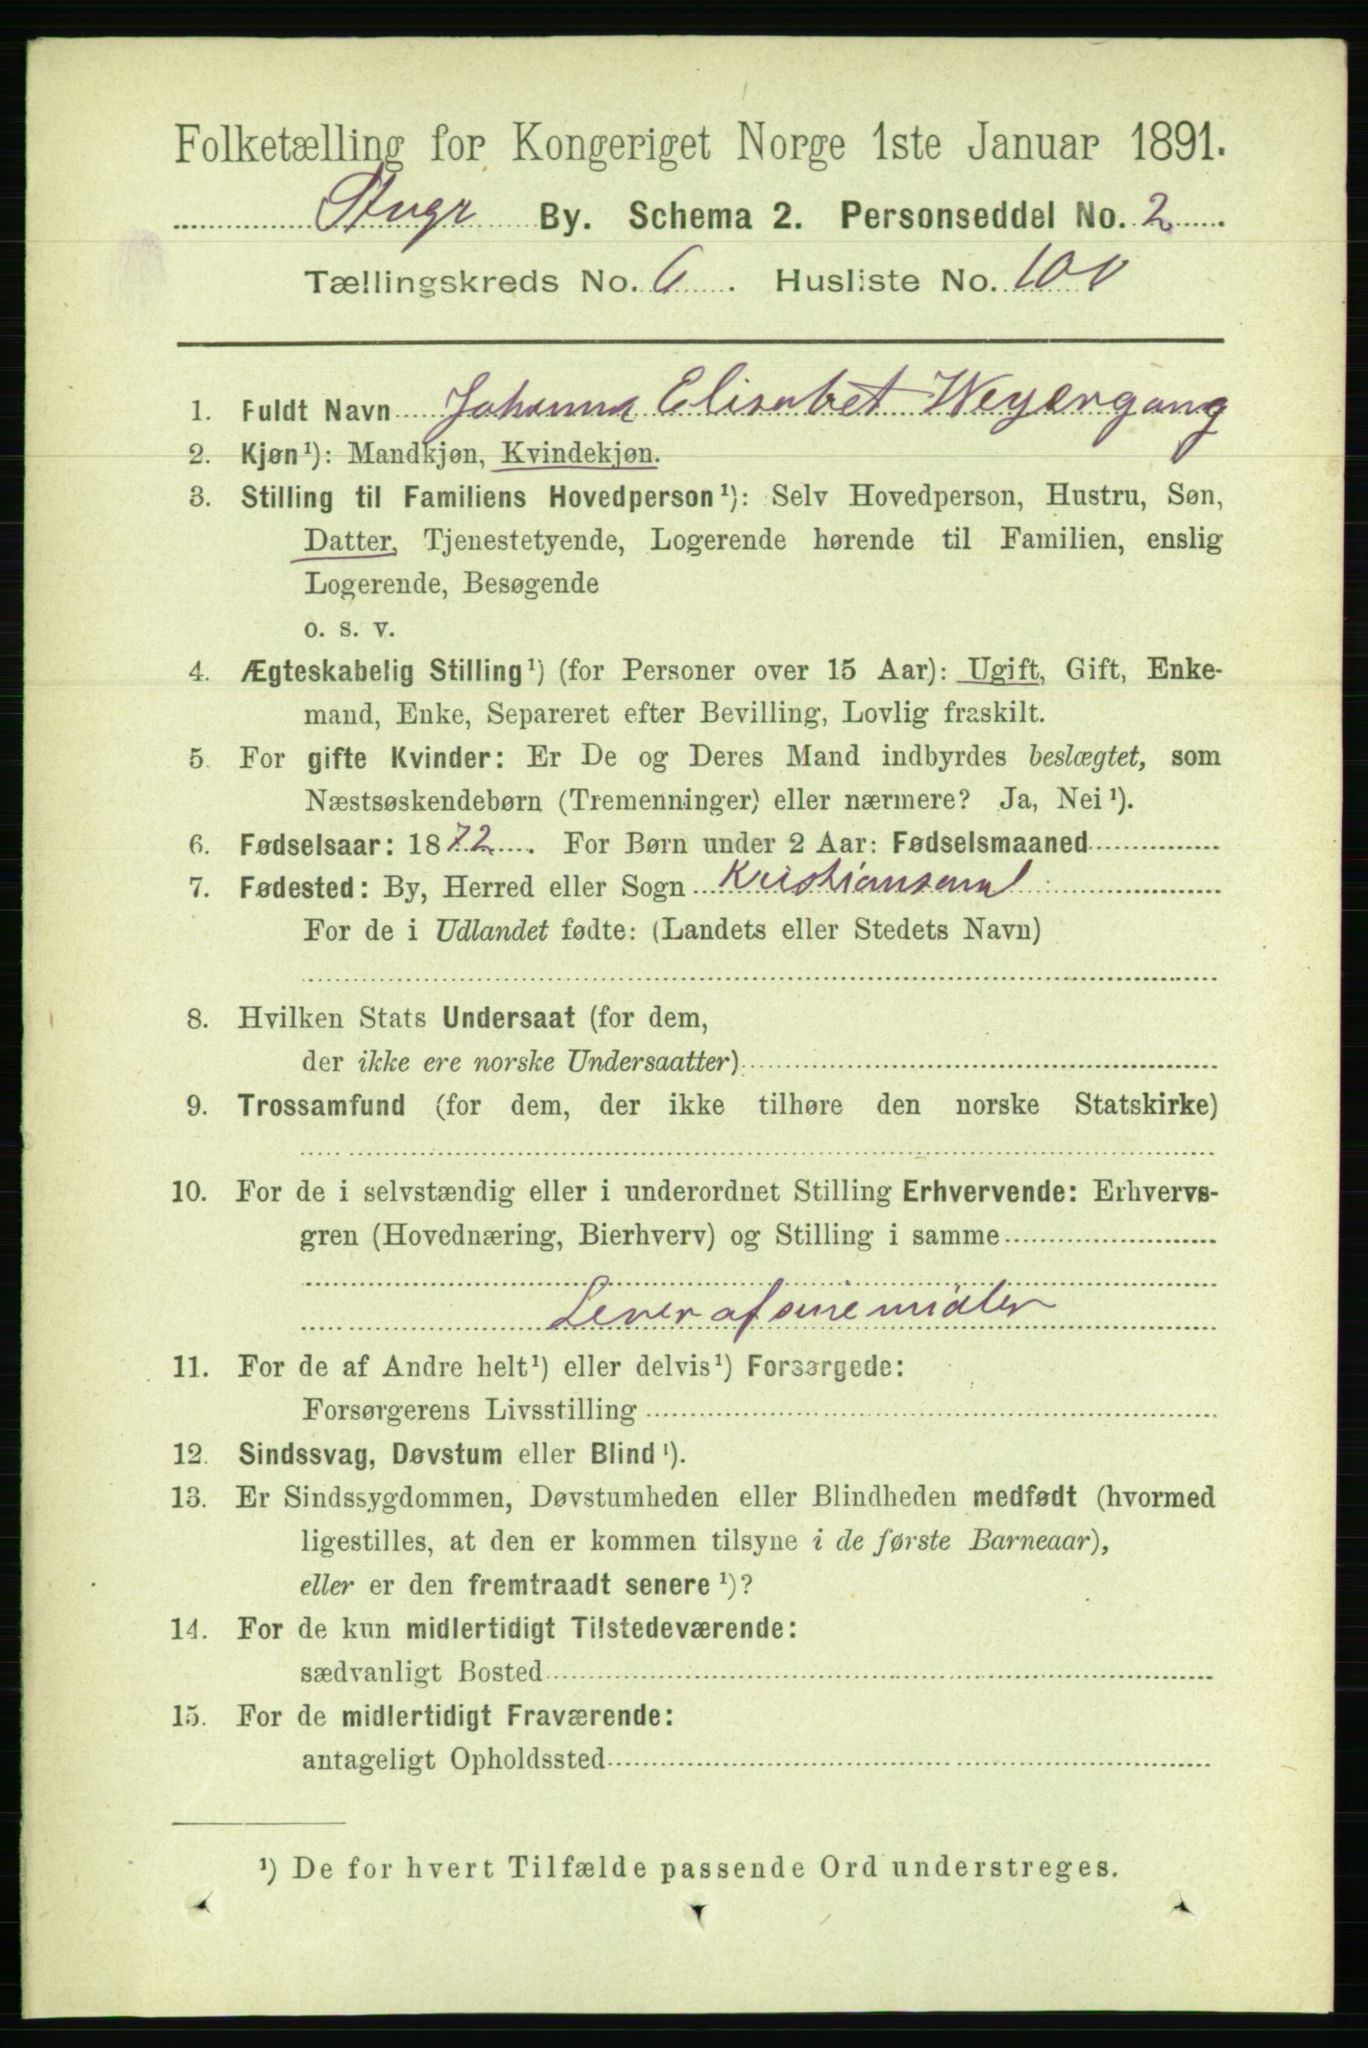 Folketælling for Kongeriget Norge 1ste Januar 1891.
By. Schema 2. Personseddel No. 2
Tællingskreds No. 6. Husliste No. 100
1. Fuldt Navn Johanna Elisabet Weyergang
2. Kjøn¹): Mandkjøn, Kvindekjøn.
3. Stilling til Familiens Hovedperson¹): Selv Hovedperson, Hustru, Søn,
Datter, Tjenestetyende, Logerende hørende til Familien, enslig
Logerende, Besøgende
o. s. v.
4. Ægteskabelig Stilling¹) (for Personer over 15 Aar): Ugift, Gift, Enke-
mand, Enke, Separeret efter Bevilling, Lovlig fraskilt.
5. For gifte Kvinder: Er De og Deres Mand indbyrdes beslægtet, som
Næstsøskendebørn (Tremenninger) eller nærmere? Ja, Nei¹).
6. Fødselsaar: 1872. For Børn under 2 Aar: Fødselsmaaned
7. Fødested: By, Herred eller Sogn Kristiansand
For de i Udlandet fødte: (Landets eller Stedets Navn)
8. Hvilken Stats Undersaat (for dem,
der ikke ere norske Undersaatter)
9. Trossamfund (for dem, der ikke tilhøre den norske Statskirke)
10. For de i selvstændig eller i underordnet Stilling Erhvervende: Erhvervs-
gren (Hovednæring, Bierhverv) og Stilling i samme
Lever af sine midler
11. For de af Andre helt¹) eller delvis¹) Forsørgede:
Forsørgerens Livsstilling
12. Sindssvag, Døvstum eller Blind¹).
13. Er Sindssygdommen, Døvstumheden eller Blindheden medfødt (hvormed
ligestilles, at den er kommen tilsyne i de første Barneaar),
eller er den fremtraadt senere¹)?
14. For de kun midlertidigt Tilstedeværende:
sædvanligt Bosted
15. For de midlertidigt Fraværende:
antageligt Opholdssted
¹) De for hvert Tilfælde passende Ord understreges.